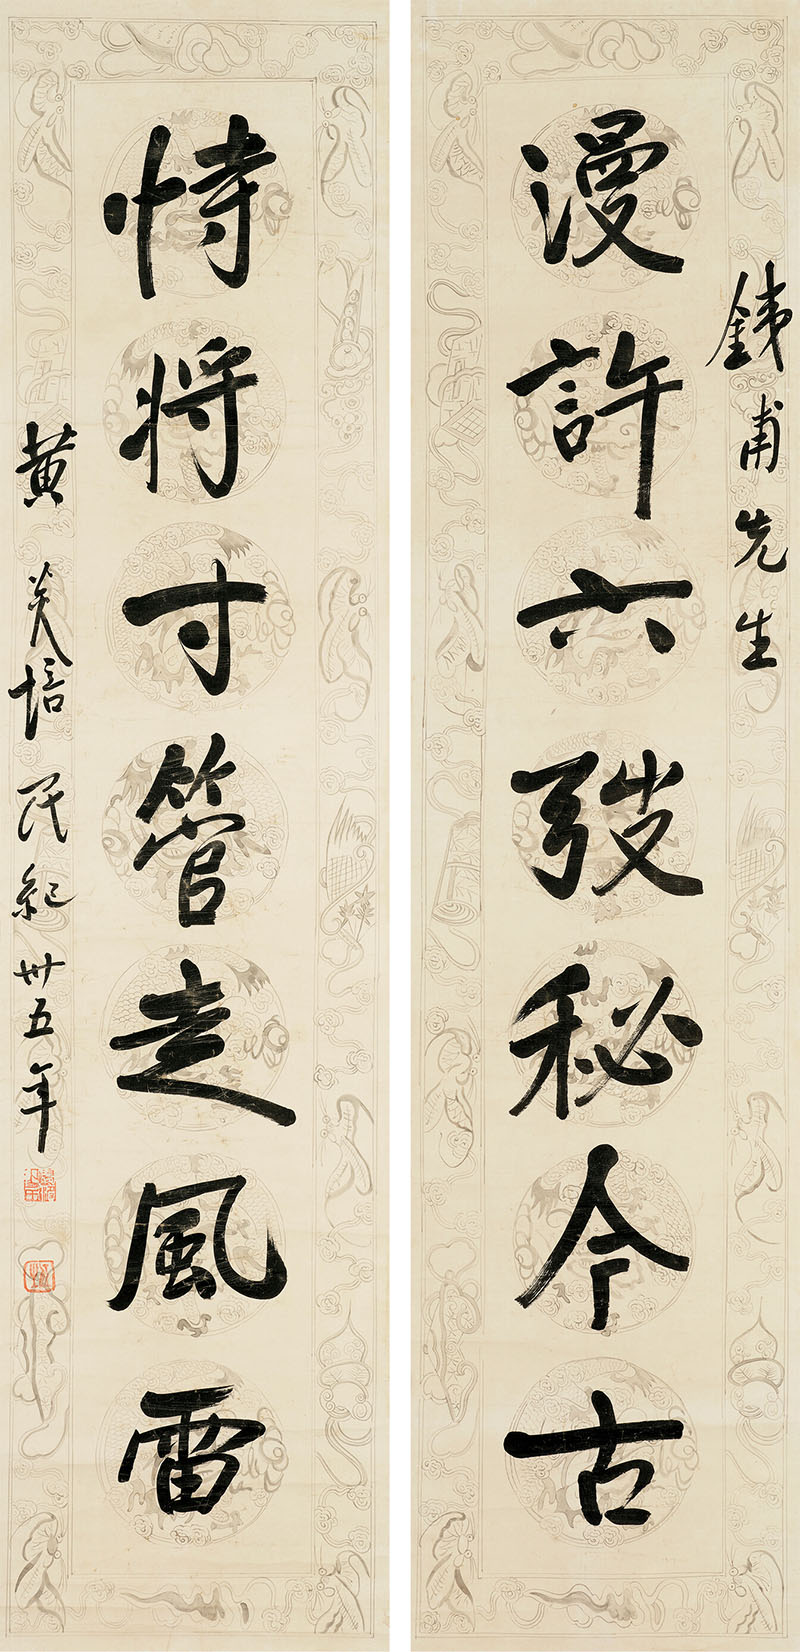 銕甫先生
漫許六弢秘今古
恃將寸管走風雷
黄炎培 民紀卅五年